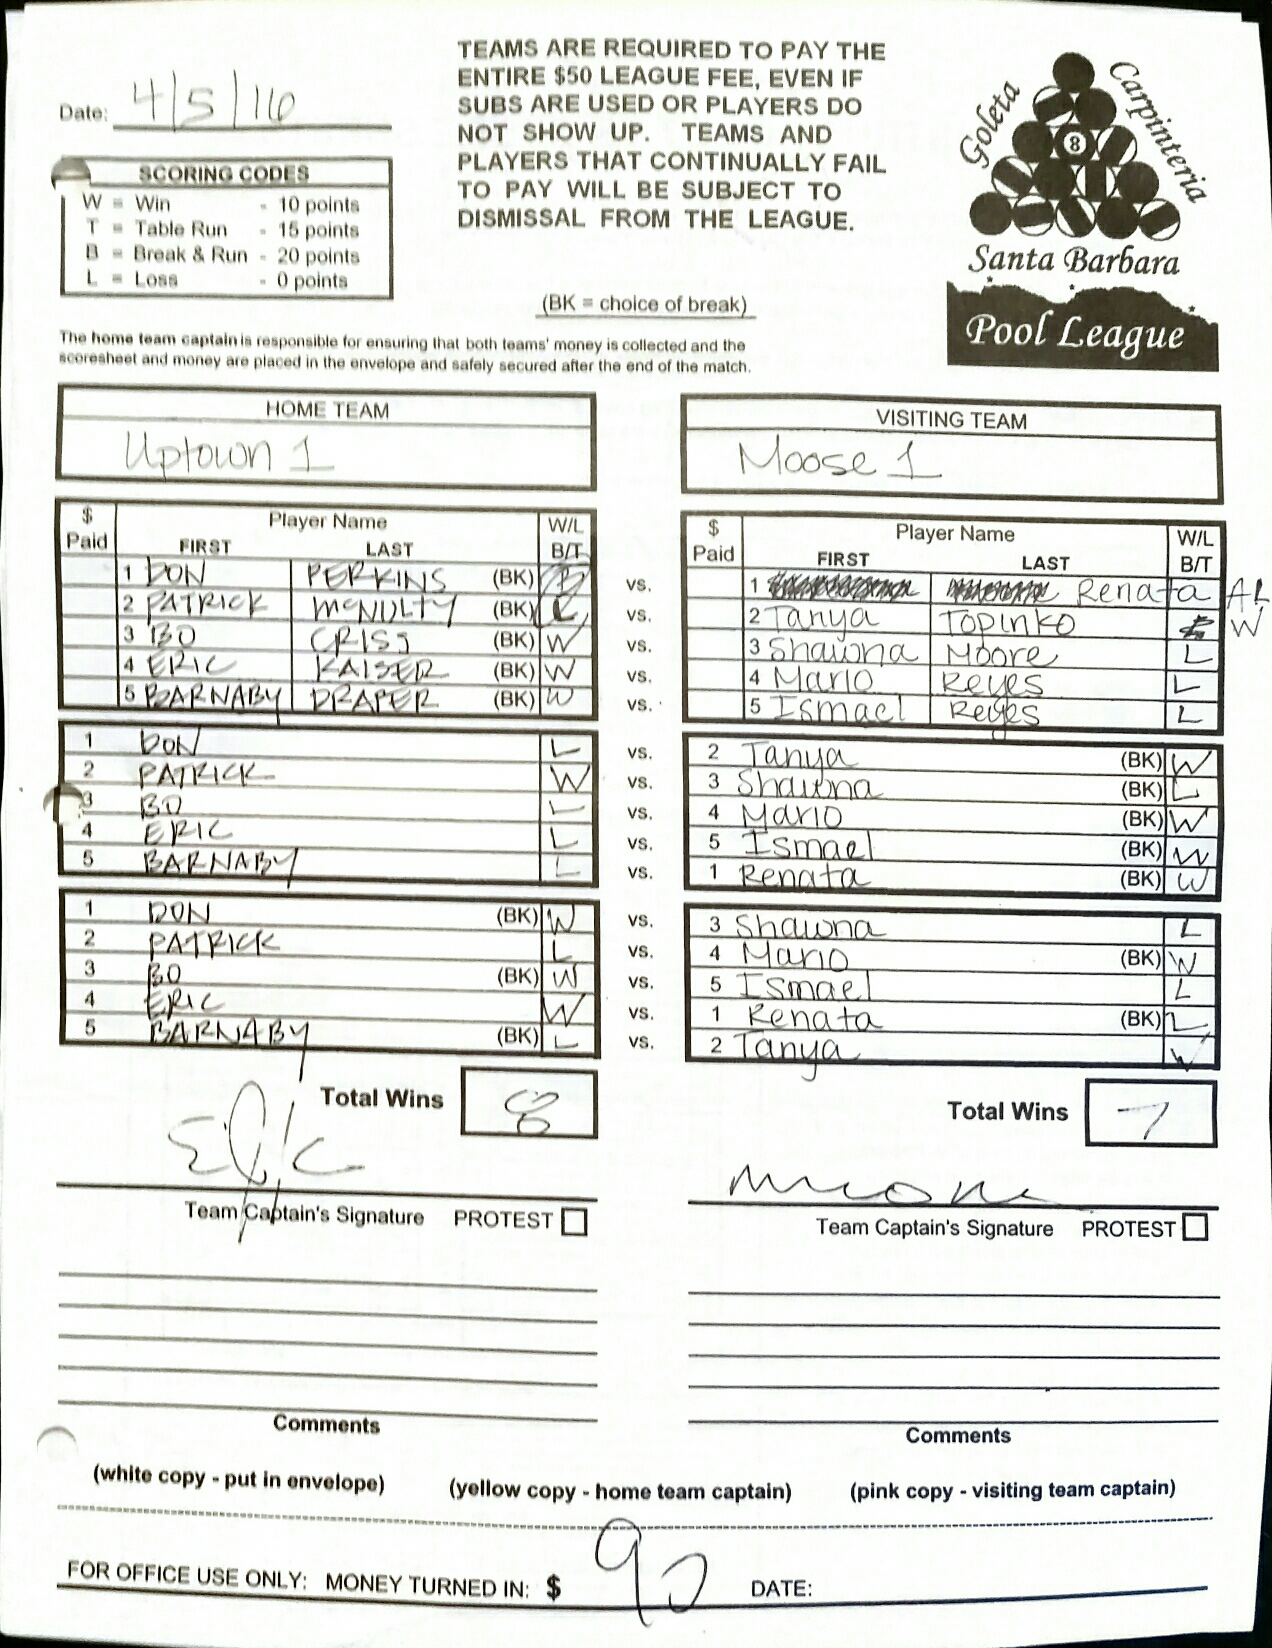 Date: 4/5/16
TEAMS ARE REQUIRED TO PAY THE
ENTIRE $50 LEAGUE FEE, EVEN IF
SUBS ARE USED OR PLAYERS DO
NOT SHOW UP. TEAMS AND
PLAYERS THAT CONTINUALLY FAIL
TO PAY WILL BE SUBJECT TO
DISMISSAL FROM THE LEAGUE.
(BK = choice of break)
SCORING CODES
W = Win - 10 points
T = Table Run - 15 points
B = Break & Run - 20 points
L = Loss - 0 points
Goleta
Carpinteria
8
Santa Barbara
Pool League
The home team captain is responsible for ensuring that both teams' money is collected and the
scoresheet and money are placed in the envelope and safely secured after the end of the match.
HOME TEAM
Uptown 1
VISITING TEAM
Moose 1
$ Paid Player Name FIRST LAST W/L B/T
$ Paid Player Name FIRST LAST W/L B/T
1 DON PERKINS (BK) vs. 1 Renata
2 PATRICK McNULTY (BK) L vs. 2 Tanya Topinko W
3 BO CRISS (BK) W vs. 3 Shawna Moore L
4 ERIC KAISER (BK) W vs. 4 Mario Reyes L
5 BARNABY DRAPER (BK) W vs. 5 Ismael Reyes L
1 DON L vs. 2 Tanya (BK) W
2 PATRICK W vs. 3 Shawna (BK) L
3 BO L vs. 4 Mario (BK) W
4 ERIC L vs. 5 Ismael (BK) W
5 BARNABY L vs. 1 Renata (BK) W
1 DON (BK) W vs. 3 Shawna L
2 PATRICK L vs. 4 Mario (BK) W
3 BO (BK) W vs. 5 Ismael L
4 ERIC W vs. 1 Renata (BK) L
5 BARNABY (BK) L vs. 2 Tanya W
Total Wins 8
Total Wins 7
Team Captain's Signature PROTEST
Team Captain's Signature PROTEST
Comments
Comments
(white copy - put in envelope) (yellow copy - home team captain) (pink copy - visiting team captain)
FOR OFFICE USE ONLY: MONEY TURNED IN: $ 90 DATE: